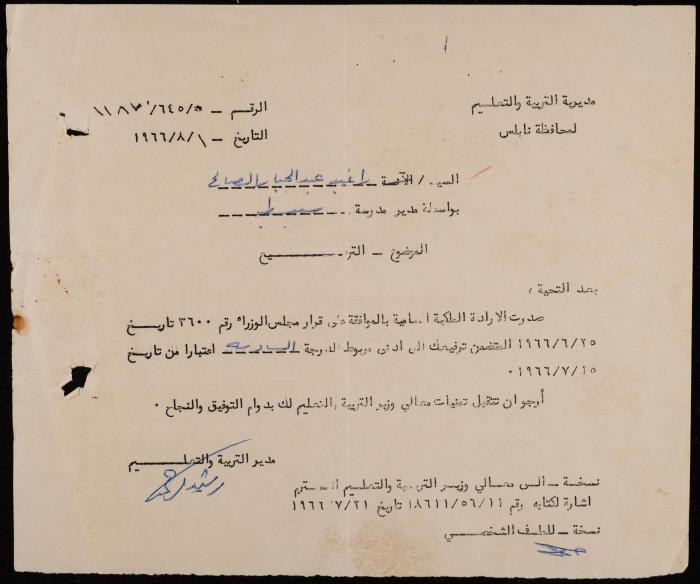 مديرية التربية والتعليم
لمحافظة نابلس
الرقم - ١١٨٣/٦٤٥/٥
التاريخ - ١٩٦٦/٨/١
السيد / الآنسة راغب عبد الجبار الصالح
بواسطة مدير مدرسة
الموضوع - الترفيع
بعد التحية ،
صدرت الارادة الملكية السامية بالموافقة على قرار مجلس الوزراء رقم ٣٦٠٠ تاريخ
١٩٦٦/٦/٢٥ المتضمن ترفيعك الى ادنى مربوط الدرجة السادسة اعتبارا من تاريخ
١٩٦٦/٧/١٥ ٠
أرجو ان تتقبل تمنيات معالي وزير التربية والتعليم لك بدوام التوفيق والنجاح ٠
مدير التربية والتعليم
نسخة - الى معالي وزير التربية والتعليم المحترم
اشارة لكتابه رقم ١٨٦١١/٥٦/١١ تاريخ ١٩٦٦/٧/٢١
نسخة - للملف الشخصي